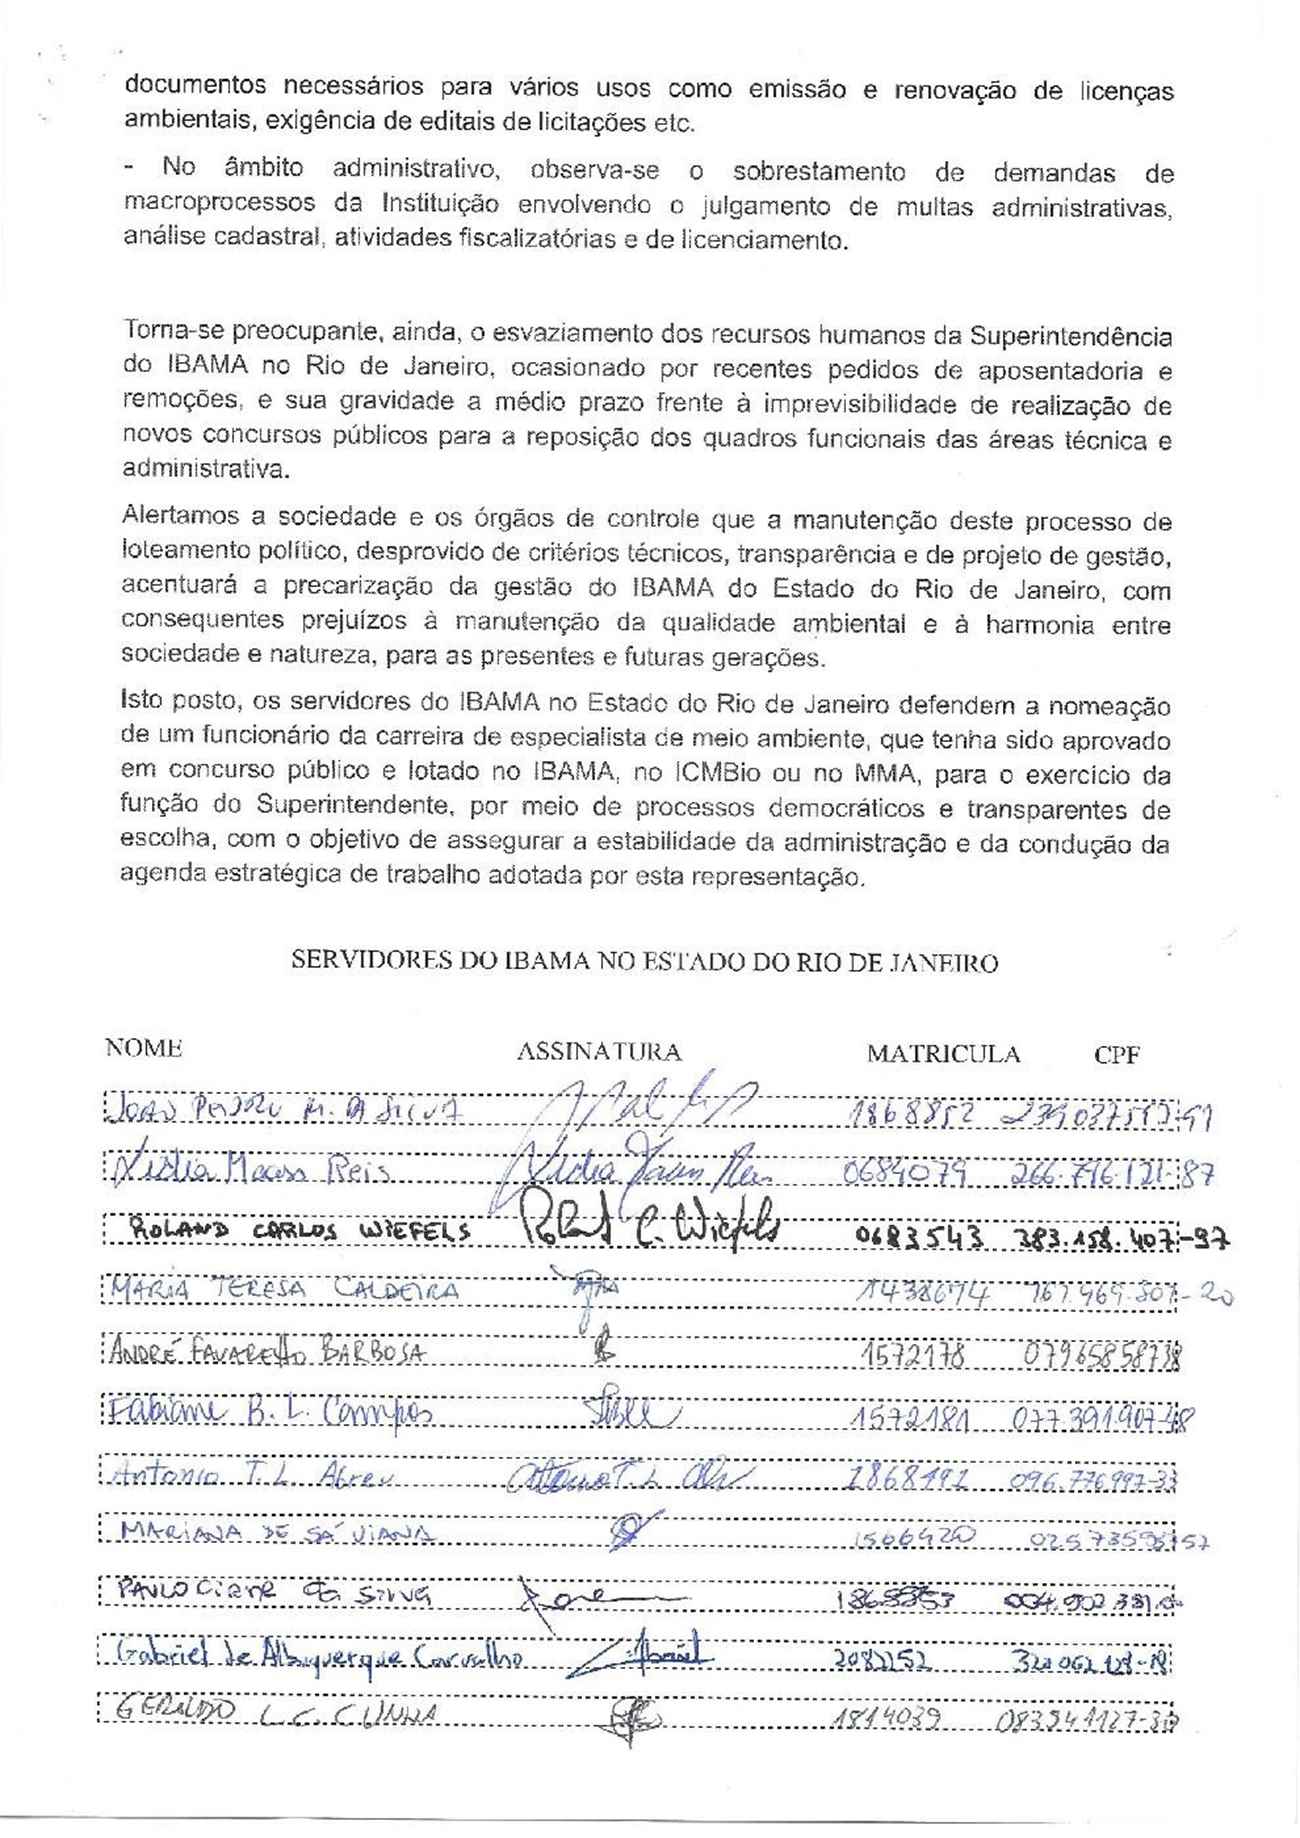 documentos necessários para vários usos como emissão e renovação de licenças
ambientais, exigência de editais de licitações etc.
- No âmbito administrativo, observa-se o sobrestamento de demandas de
macroprocessos da Instituição envolvendo o julgamento de multas administrativas,
análise cadastral, atividades fiscalizatórias e de licenciamento.
Torna-se preocupante, ainda, o esvaziamento dos recursos humanos da Superintendência
do IBAMA no Rio de Janeiro, ocasionado por recentes pedidos de aposentadoria e
remoções, e sua gravidade a médio prazo frente à imprevisibilidade de realização de
novos concursos públicos para a reposição dos quadros funcionais das áreas técnica e
administrativa.
Alertamos a sociedade e os órgãos de controle que a manutenção deste processo de
loteamento político, desprovido de critérios técnicos, transparência e de projeto de gestão,
acentuará a precarização da gestão do IBAMA do Estado do Rio de Janeiro, com
consequentes prejuízos à manutenção da qualidade ambiental e à harmonia entre
sociedade e natureza, para as presentes e futuras gerações.
Isto posto, os servidores do IBAMA no Estado do Rio de Janeiro defendem a nomeação
de um funcionário da carreira de especialista de meio ambiente, que tenha sido aprovado
em concurso público e lotado no IBAMA, no ICMBio ou no MMA, para o exercício da
função do Superintendente, por meio de processos democráticos e transparentes de
escolha, com o objetivo de assegurar a estabilidade da administração e da condução da
agenda estratégica de trabalho adotada por esta representação.
SERVIDORES DO IBAMA NO ESTADO DO RIO DE JANEIRO
NOME ASSINATURA MATRICULA CPF
JOAO M. DA SILVA 1868852
Lidia Reis 0684079 266.796.121-87
ROLAND CARLOS WIEFELS Roland C. Wiefels 0683543 383.158.407-97
MARIA TERESA CALDEIRA 1438674
ANDRÉ FAVARETTO BARBOSA 1572178 07965858738
Fabiane B. L. Campos 1572181 077.391.907-48
Antonio T. L. Abreu Antonio T. L. 096.776.997-33
MARIANA DE SÁ VIANA 1566420
PAULO da SILVA
Gabriel de Albuquerque Carvalho 2082152
GERALDO L. C. CUNHA 1814039